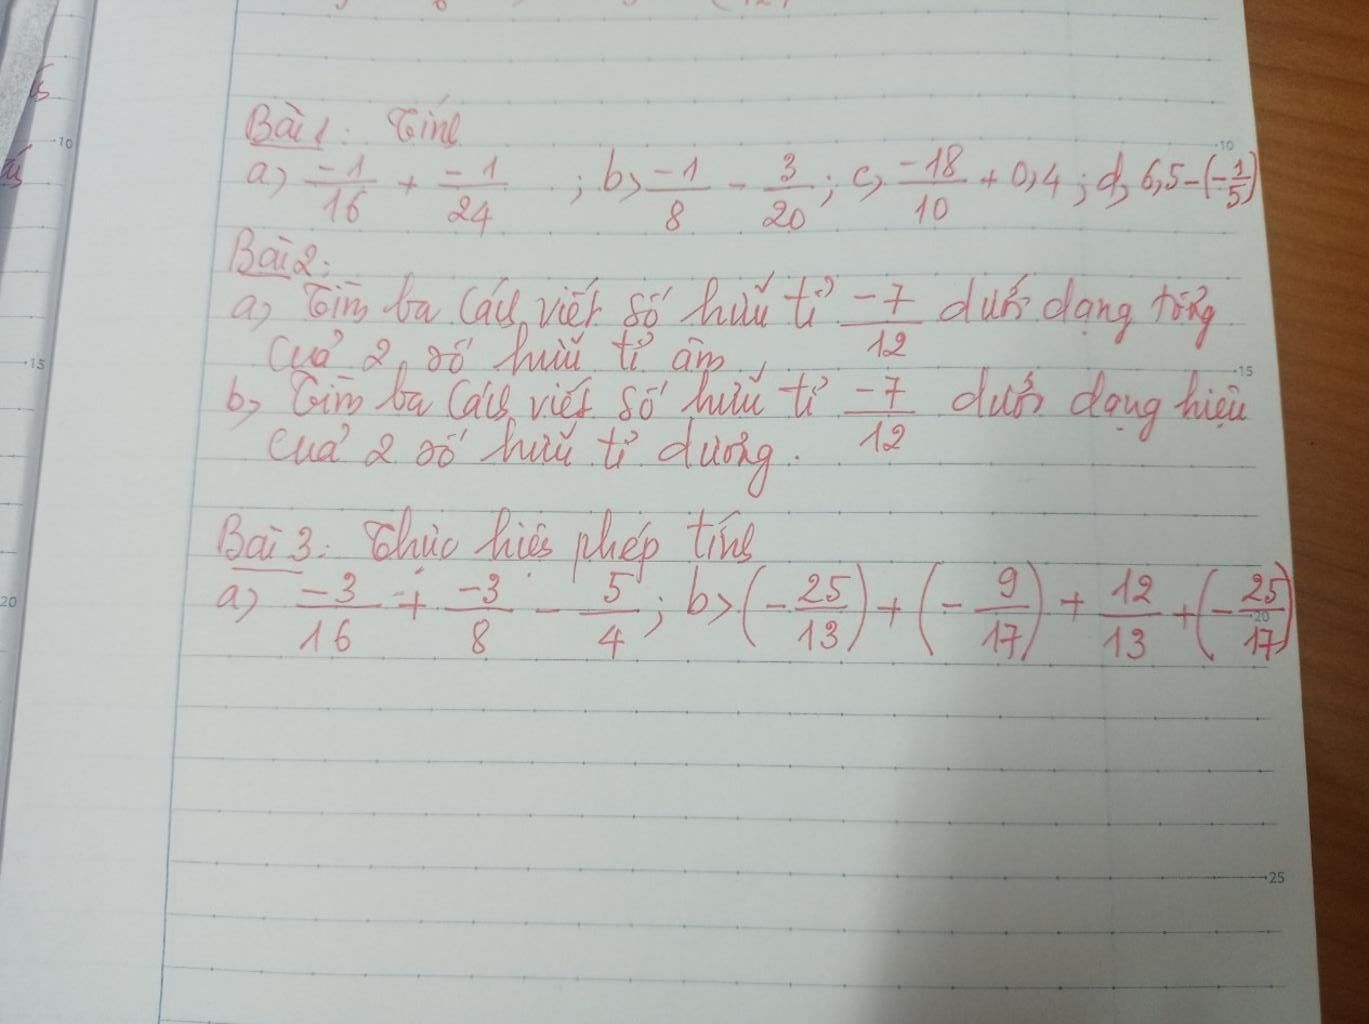 Bài 1: Tính
a) -1/16 + -1/24 ; b) -1/8 - 3/20 ; c) -18/10 + 0,4 ; d) 6,5 - (-1/5)
Bài 2:
a) Tìm ba cách viết số hữu tỉ -7/12 dưới dạng tổng
của 2 số hữu tỉ âm
b) Tìm ba cách viết số hữu tỉ -7/12 dưới dạng hiệu
của 2 số hữu tỉ dương.
Bài 3: Thực hiện phép tính
a) -3/16 + -3/8 - 5/4 ; b) (-25/13) + (-9/17) + 12/13 + (-25/17)
10
15
20
10
15
20
25